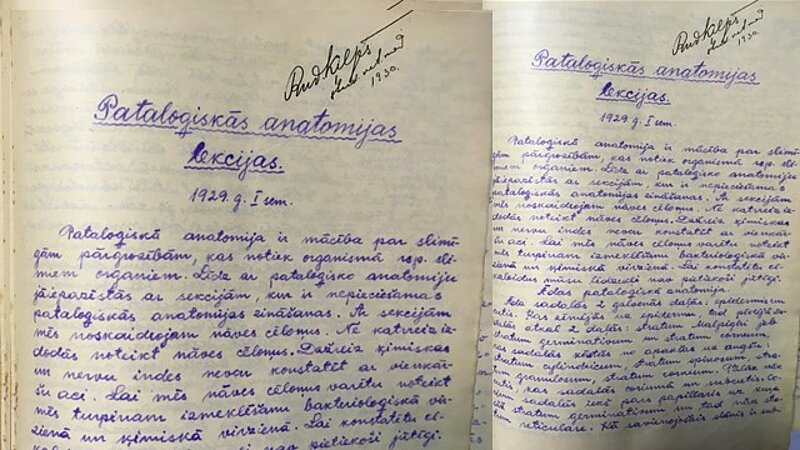 1930.
Pataloģiskās anatomijas
lekcijas.
1929.g. I sem.
Pataloģiskā anatomija ir mācība par slimī-
gām pārgrozībām, kas notiek organismā resp. sli-
miem organiem. Līdz ar patalogisko anatomiju
jāiepazīstās ar sekcijām, kur ir nepieciešamas
patalogiskās anatomijas zināšanas. Ar sekcijām
mēs noskaidrojam nāves cēloņus. Ne katrreiz iz-
dodās noteikt nāves cēloņus. Dažreiz ķīmiskas
un nervu indes nevar konstatēt ar vienkār-
šu aci. Lai mēs nāves cēloņus varētu noteikt
mēs turpinam izmeklēšanu bakterioloģiskā vir-
zienā un ķīmiskā virzienā. Lai konstatētu al-
pietiekoši jūtīgi.
1930.
Pataloģiskās anatomijas
lekcijas.
1929.g. I sem.
Pataloģiskā anatomija ir mācība par slimī-
gām pārgrozībām, kas notiek organismā resp. sli-
miem organiem. Līdz ar patalogisko anatomiju
jāiepazīstās ar sekcijām, kur ir nepieciešamas
patalogiskās anatomijas zināšanas. Ar sekcijām
mēs noskaidrojam nāves cēloņus. Ne katrreiz iz-
dodās noteikt nāves cēloņus. Dažreiz ķīmiskas
un nervu indes nevar konstatēt ar vienkār-
šu aci. Lai mēs nāves cēloņus varētu noteikt
mēs turpinam izmeklēšanu bakterioloģiskā vir-
zienā un ķīmiskā virzienā. Lai konstatētu al-
kaloidus mūsu līdzekļi nav pietiekoši jūtīgi.
Ādas patalogiskā anatomija.
Āda sadalās 2 galvenās daļās: epidermis un
cutis. Kas zīmējās uz epidermu, tad
atkal 2 daļās: stratum Malpighi jeb
stratum germinativum un stratum corneum.
sadalās no apakšas uz augšu:
stratum cylindricum, stratum spinosum, stra-
tum granulosum, stratum corneum. Tālāk nāk
cutis, kas sadalās corium un subcutis.
sadalās pars papillaris uz kuŗa
stratum germinativum un tad nāk stra-
tum reticulare. Kā savienojošais slānis ir sub-